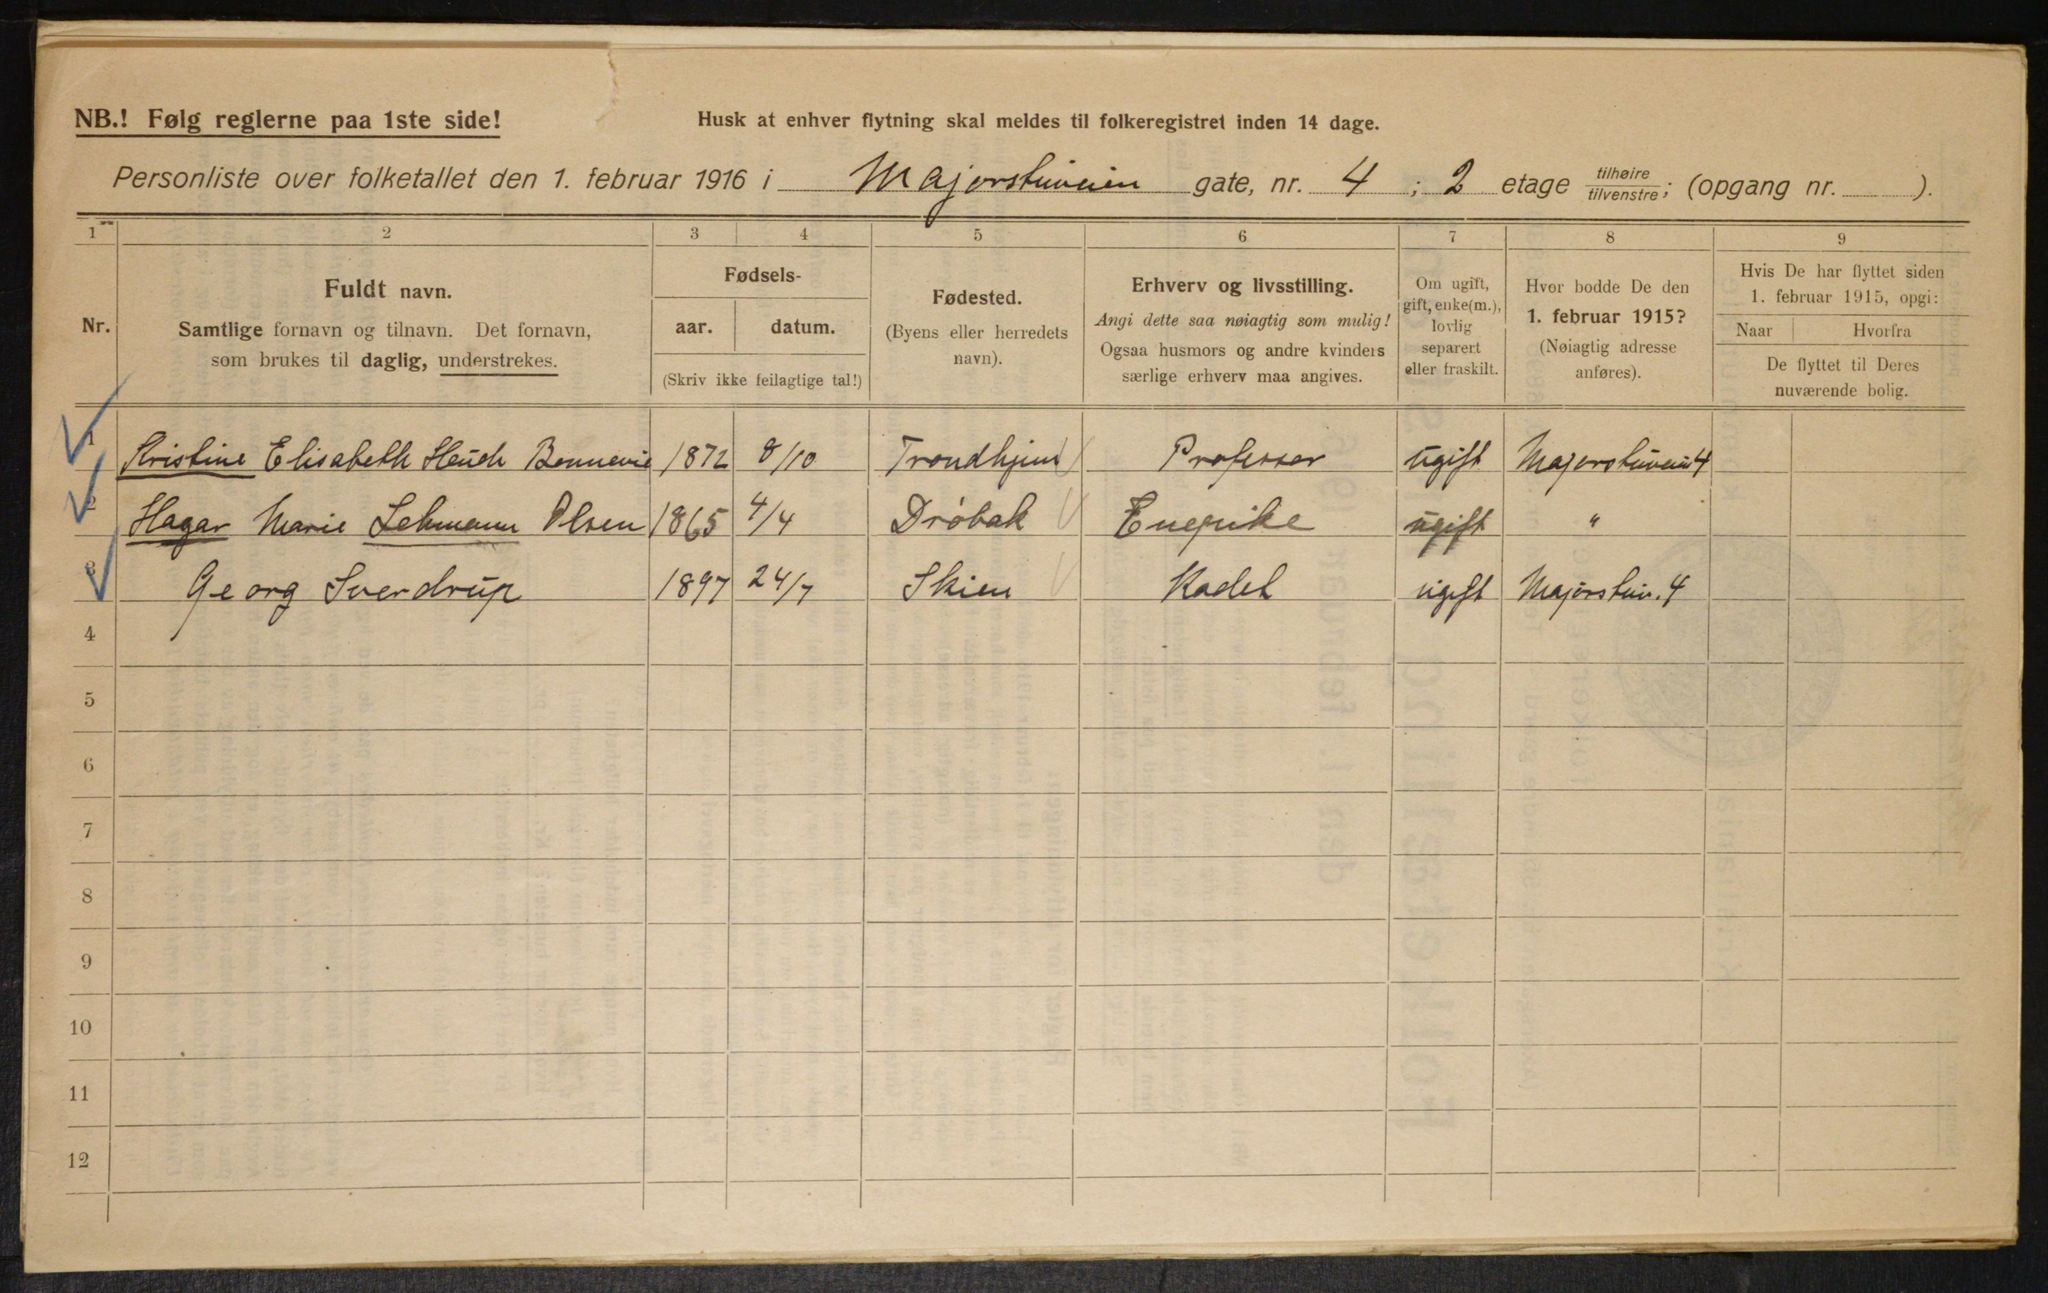 NB.! Følg reglerne paa 1ste side!
Husk at enhver flytning skal meldes til folkeregistret inden 14 dage.
Personliste over folketallet den 1. februar 1916 i Majorstuveien gate, nr. 4 ; 2 etage tilhøire/tilvenstre; (opgang nr. ).
1 2 3 4 5 6 7 8 9
Nr.
Fuldt navn.
Samtlige fornavn og tilnavn. Det fornavn,
som brukes til daglig, understrekes.
Fødsels-
aar. datum.
(Skriv ikke feilagtige tal!)
Fødested.
(Byens eller herredets
navn).
Erhverv og livsstilling.
Angi dette saa nøiagtig som mulig!
Ogsaa husmors og andre kvinders
særlige erhverv maa angives.
Om ugift,
gift, enke(m.),
lovlig
separert
eller fraskilt.
Hvor bodde De den
1. februar 1915?
(Nøiagtig adresse
anføres).
Hvis De har flyttet siden
1. februar 1915, opgi:
Naar Hvorfra
De flyttet til Deres
nuværende bolig.
1 Kristine Elisabeth Heuch Bonnevie 1872 8/10 Trondhjem Professor ugift Majorstuveien 4
2 Hagar Marie Lehmann Olsen 1865 4/4 Drøbak ugift "
3 Georg Sverdrup 1897 24/7 Skien Kadet ugift Majorstuv. 4
4
5
6
7
8
9
10
11
12